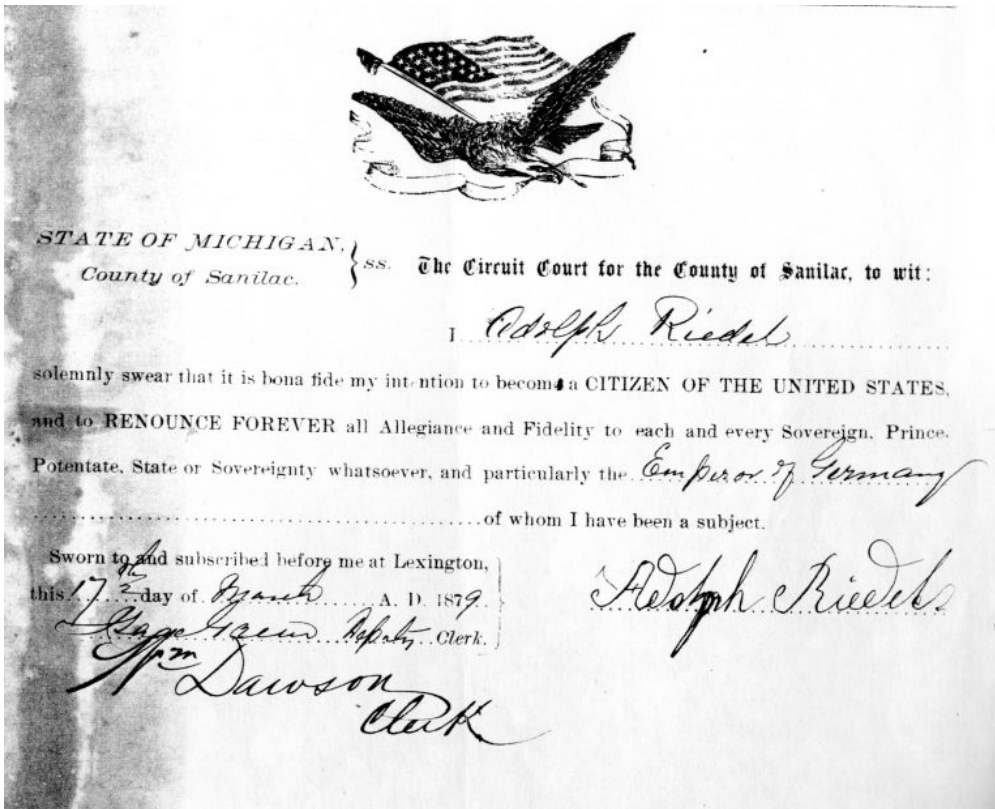 STATE OF MICHIGAN,
County of Sanilac.
ss. The Circuit Court for the County of Sanilac, to wit:
I Adolph Riedel
solemnly swear that it is bona fide my intention to become a CITIZEN OF THE UNITED STATES,
and to RENOUNCE FOREVER all Allegiance and Fidelity to each and every Sovereign, Prince,
Potentate, State or Sovereignty whatsoever, and particularly the Emperor of Germany
of whom I have been a subject.
Sworn to and subscribed before me at Lexington,
this 17th day of March A. D. 1879.
Deputy Clerk.
Adolph Riedel
Wm
Dawson
Clerk